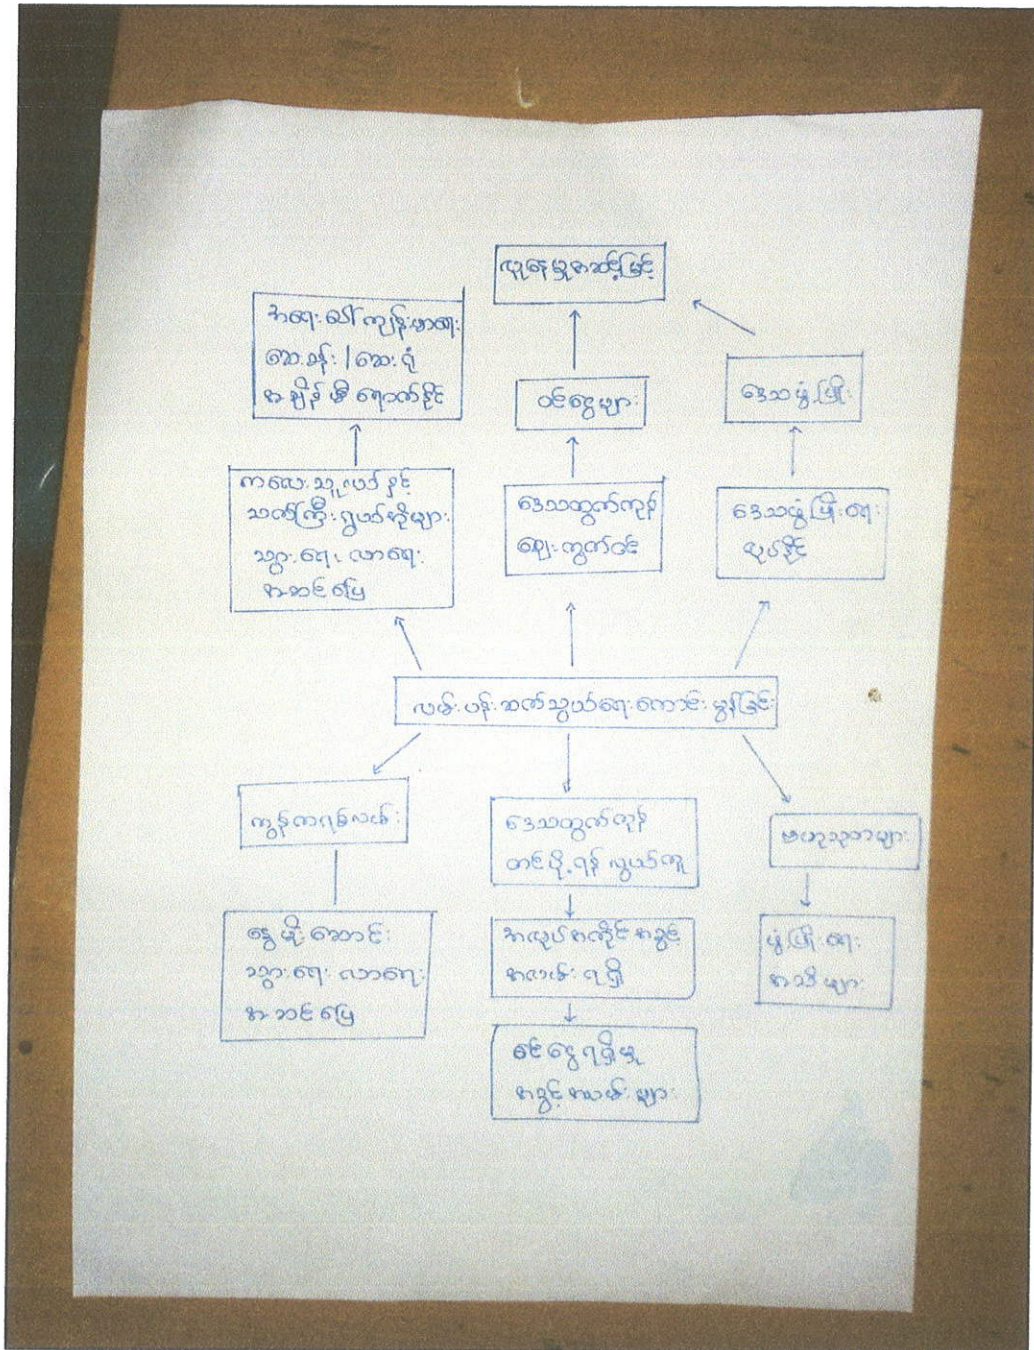 လူနေမှုအဆင့်မြင့်
အရေးပေါ်ကျန်းမာရေး
ဆေးခန်း / ဆေးရုံ
အချိန်မီ ရောက်နိုင်
ဝင်ငွေများ
ဒေသဖွံ့ဖြိုး
ကလေးသူငယ်နှင့်
သက်ကြီးရွယ်အိုများ
သွားရေးလာရေး
အဆင်ပြေ
ဒေသထွက်ကုန်
ဈေးကွက်ဝင်
ဒေသဖွံ့ဖြိုးရေး
လုပ်နိုင်
လမ်းပန်းဆက်သွယ်ရေးကောင်းမွန်ခြင်း
ကွန်ကရစ်လမ်း
ဒေသထွက်ကုန်
တင်ပို့ရန် လွယ်ကူ
ဗဟုသုတများ
နွေမိုးဆောင်း
သွားရေးလာရေး
အဆင်ပြေ
အလုပ်အကိုင်အခွင့်
အလမ်းရရှိ
ဖွံ့ဖြိုးရေး
အသိများ
ဝင်ငွေရရှိမှု
အခွင့်အလမ်းများ